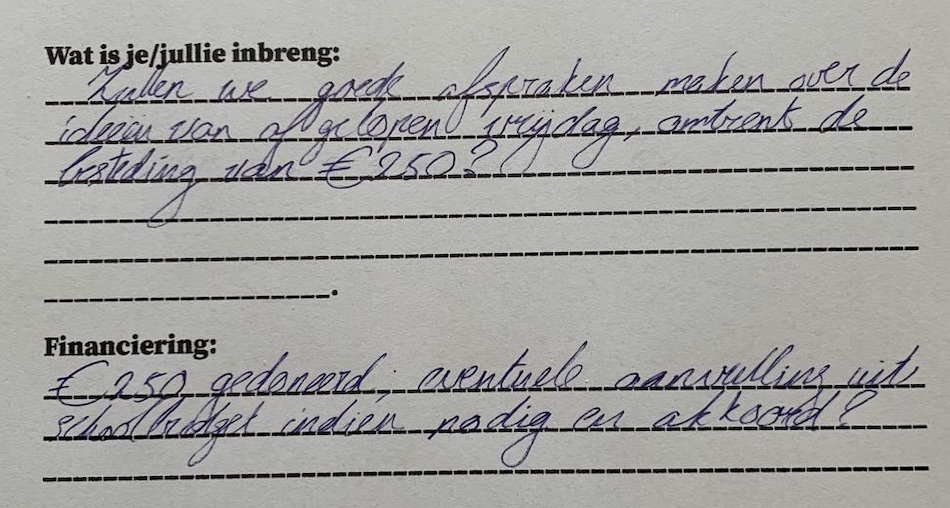 Wat is je/jullie inbreng:
Zullen we goede afspraken maken over de
ideeën van afgelopen vrijdag, omtrent de
besteding van €250?
Financiering:
€250 gedoneerd, eventuele aanvulling uit
schoolbudget indien nodig en akkoord?